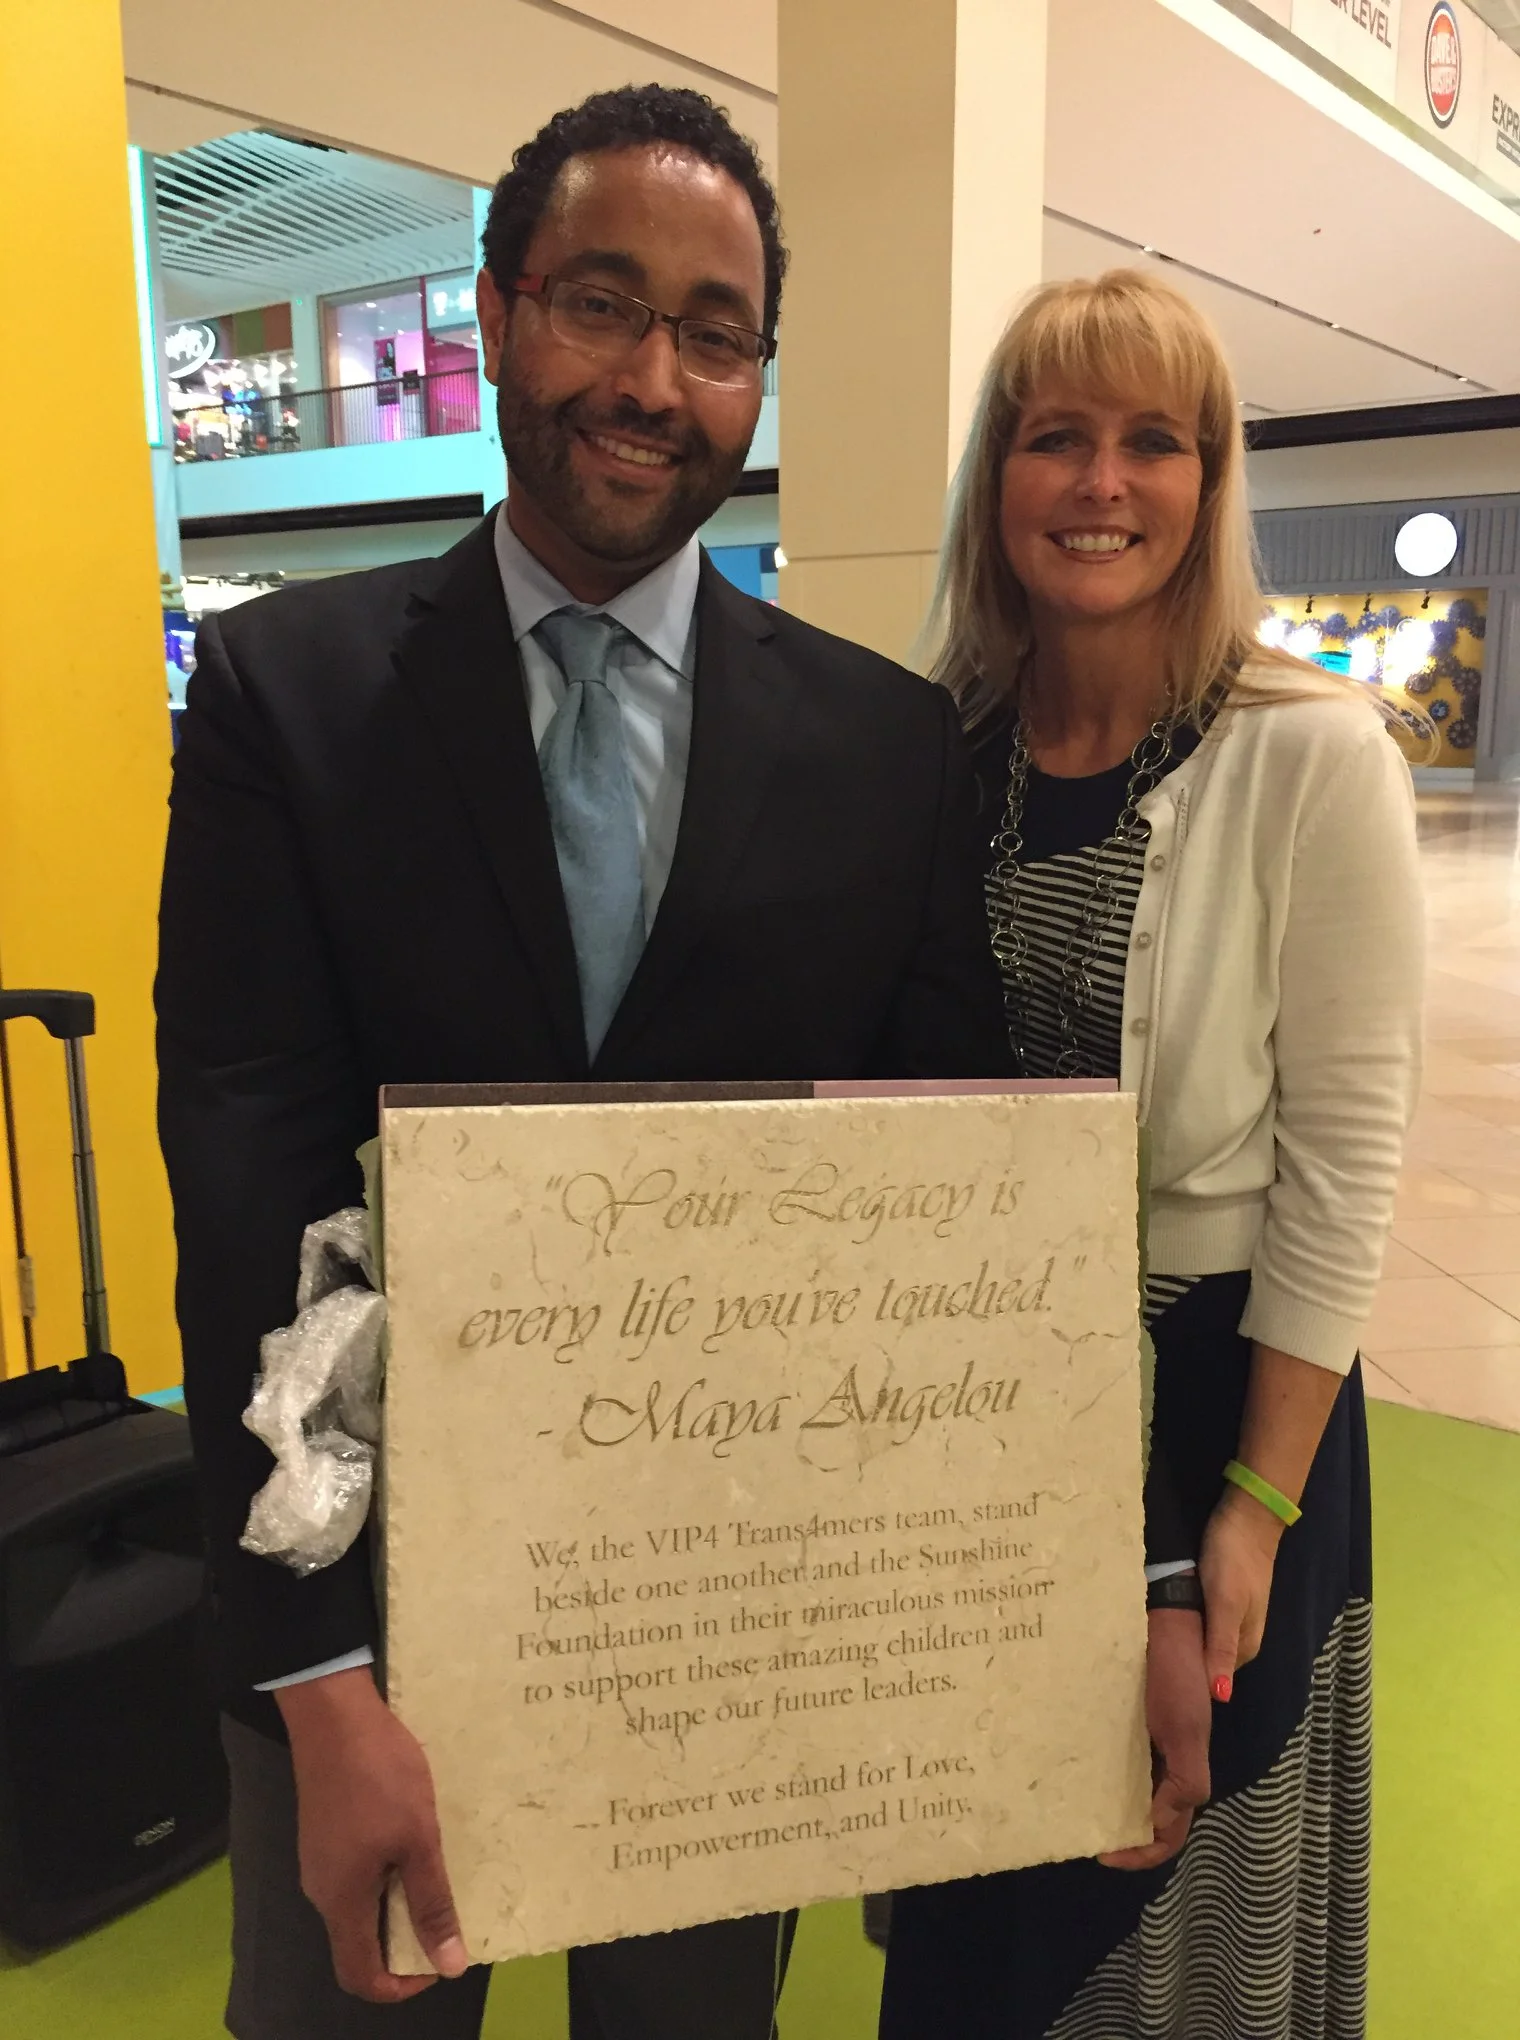 LEVEL
DAVE &
BUSTER'S
EXPR
"Your Legacy is
every life you've touched."
- Maya Angelou
We, the VIP4 Trans4mers team, stand
beside one another and the Sunshine
Foundation in their miraculous mission
to support these amazing children and
shape our future leaders.
Forever we stand for Love,
Empowerment, and Unity.
DENON